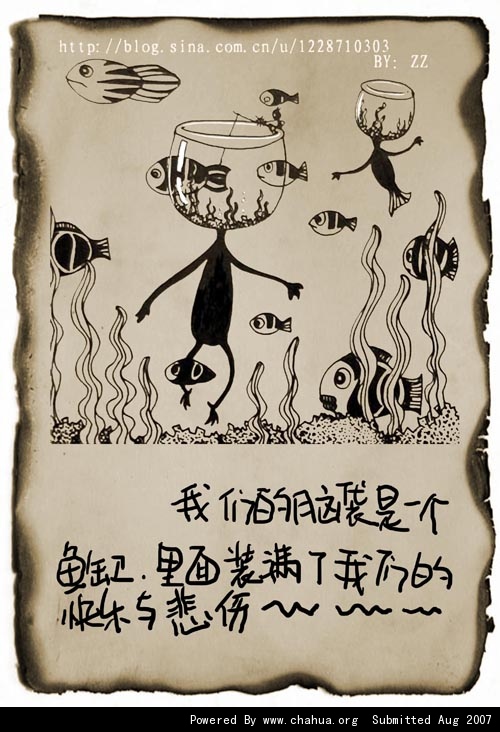 http://blog.sina.com.cn/u/1228710303
BY: ZZ
我们的脑袋是一个
鱼缸.里面装满了我们的
快乐与悲伤~~~
Powered By www.chahua.org Submitted Aug 2007